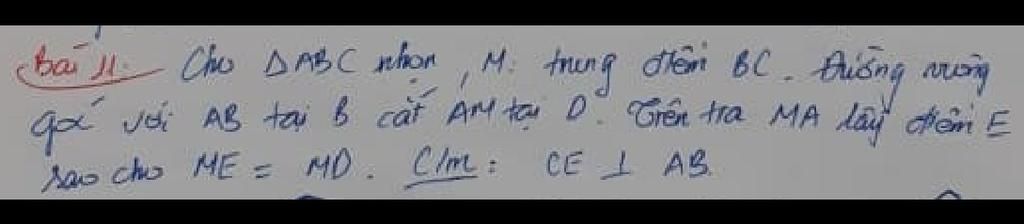 Bài 11. Cho ΔABC nhọn, M: trung điểm BC. Đường vuông
góc với AB tại B cắt AM tại D. Trên tia MA lấy điểm E
sao cho ME = MD. C/m: CE ⊥ AB.